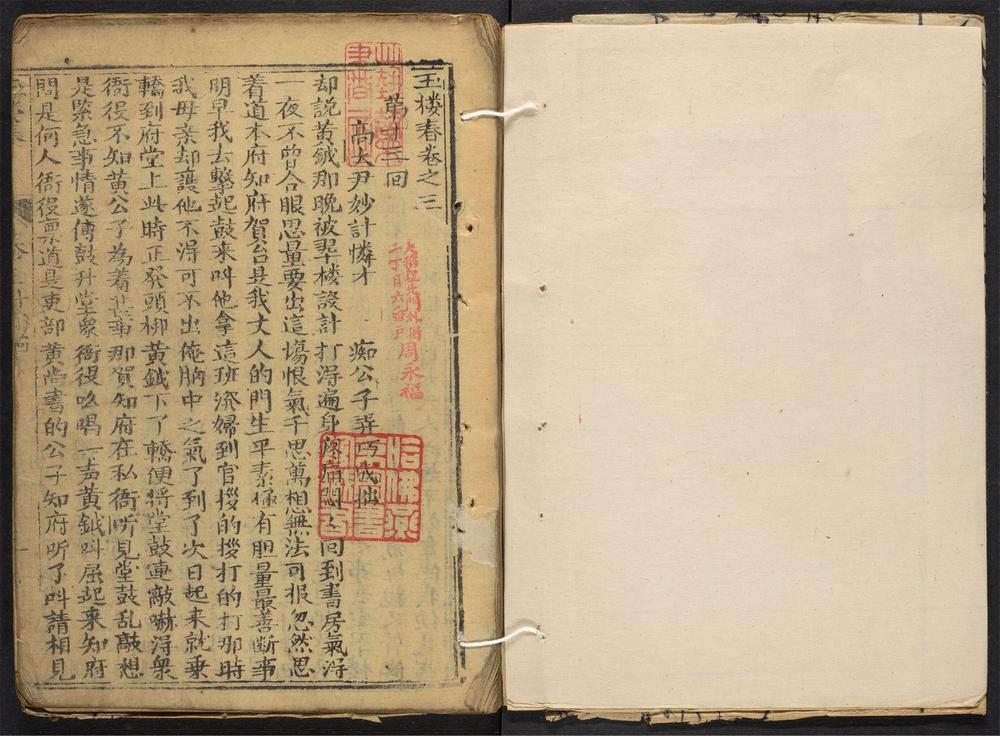 玉楼春卷之三
第十三回
高大尹妙計憐才　痴公子弄巧成拙
却説黄鉞那晚被翠楼設計打淂遍身疼痛悶々回到書房氣淂
一夜不曽合眼思量要出這塲恨氣千思萬想無法可报忽然思
着道本府知府賀台是我丈人的門生平素極有胆量最善断事
明早我去擊起鼓来叫他拿這班淫婦到官拶的拶打的打那時
我母亲却護他不得可不出俺胸中之氣了到了次日起来就乗
轎到府堂上此時正發頭梆黄鉞下了轎便将堂鼓連敲嚇淂衆
衙役不知黄公子為着甚事那賀知府在私衙听見堂鼓乱敲想
是緊急事情遂傳鼓升堂衆衙役吆喝一声黄鉞叫屈起来知府
問是何人衙役禀道是吏部黄尚書的公子知府听了叫請相見
二丁目六百戸
周永福
哈佛燕
京圖書